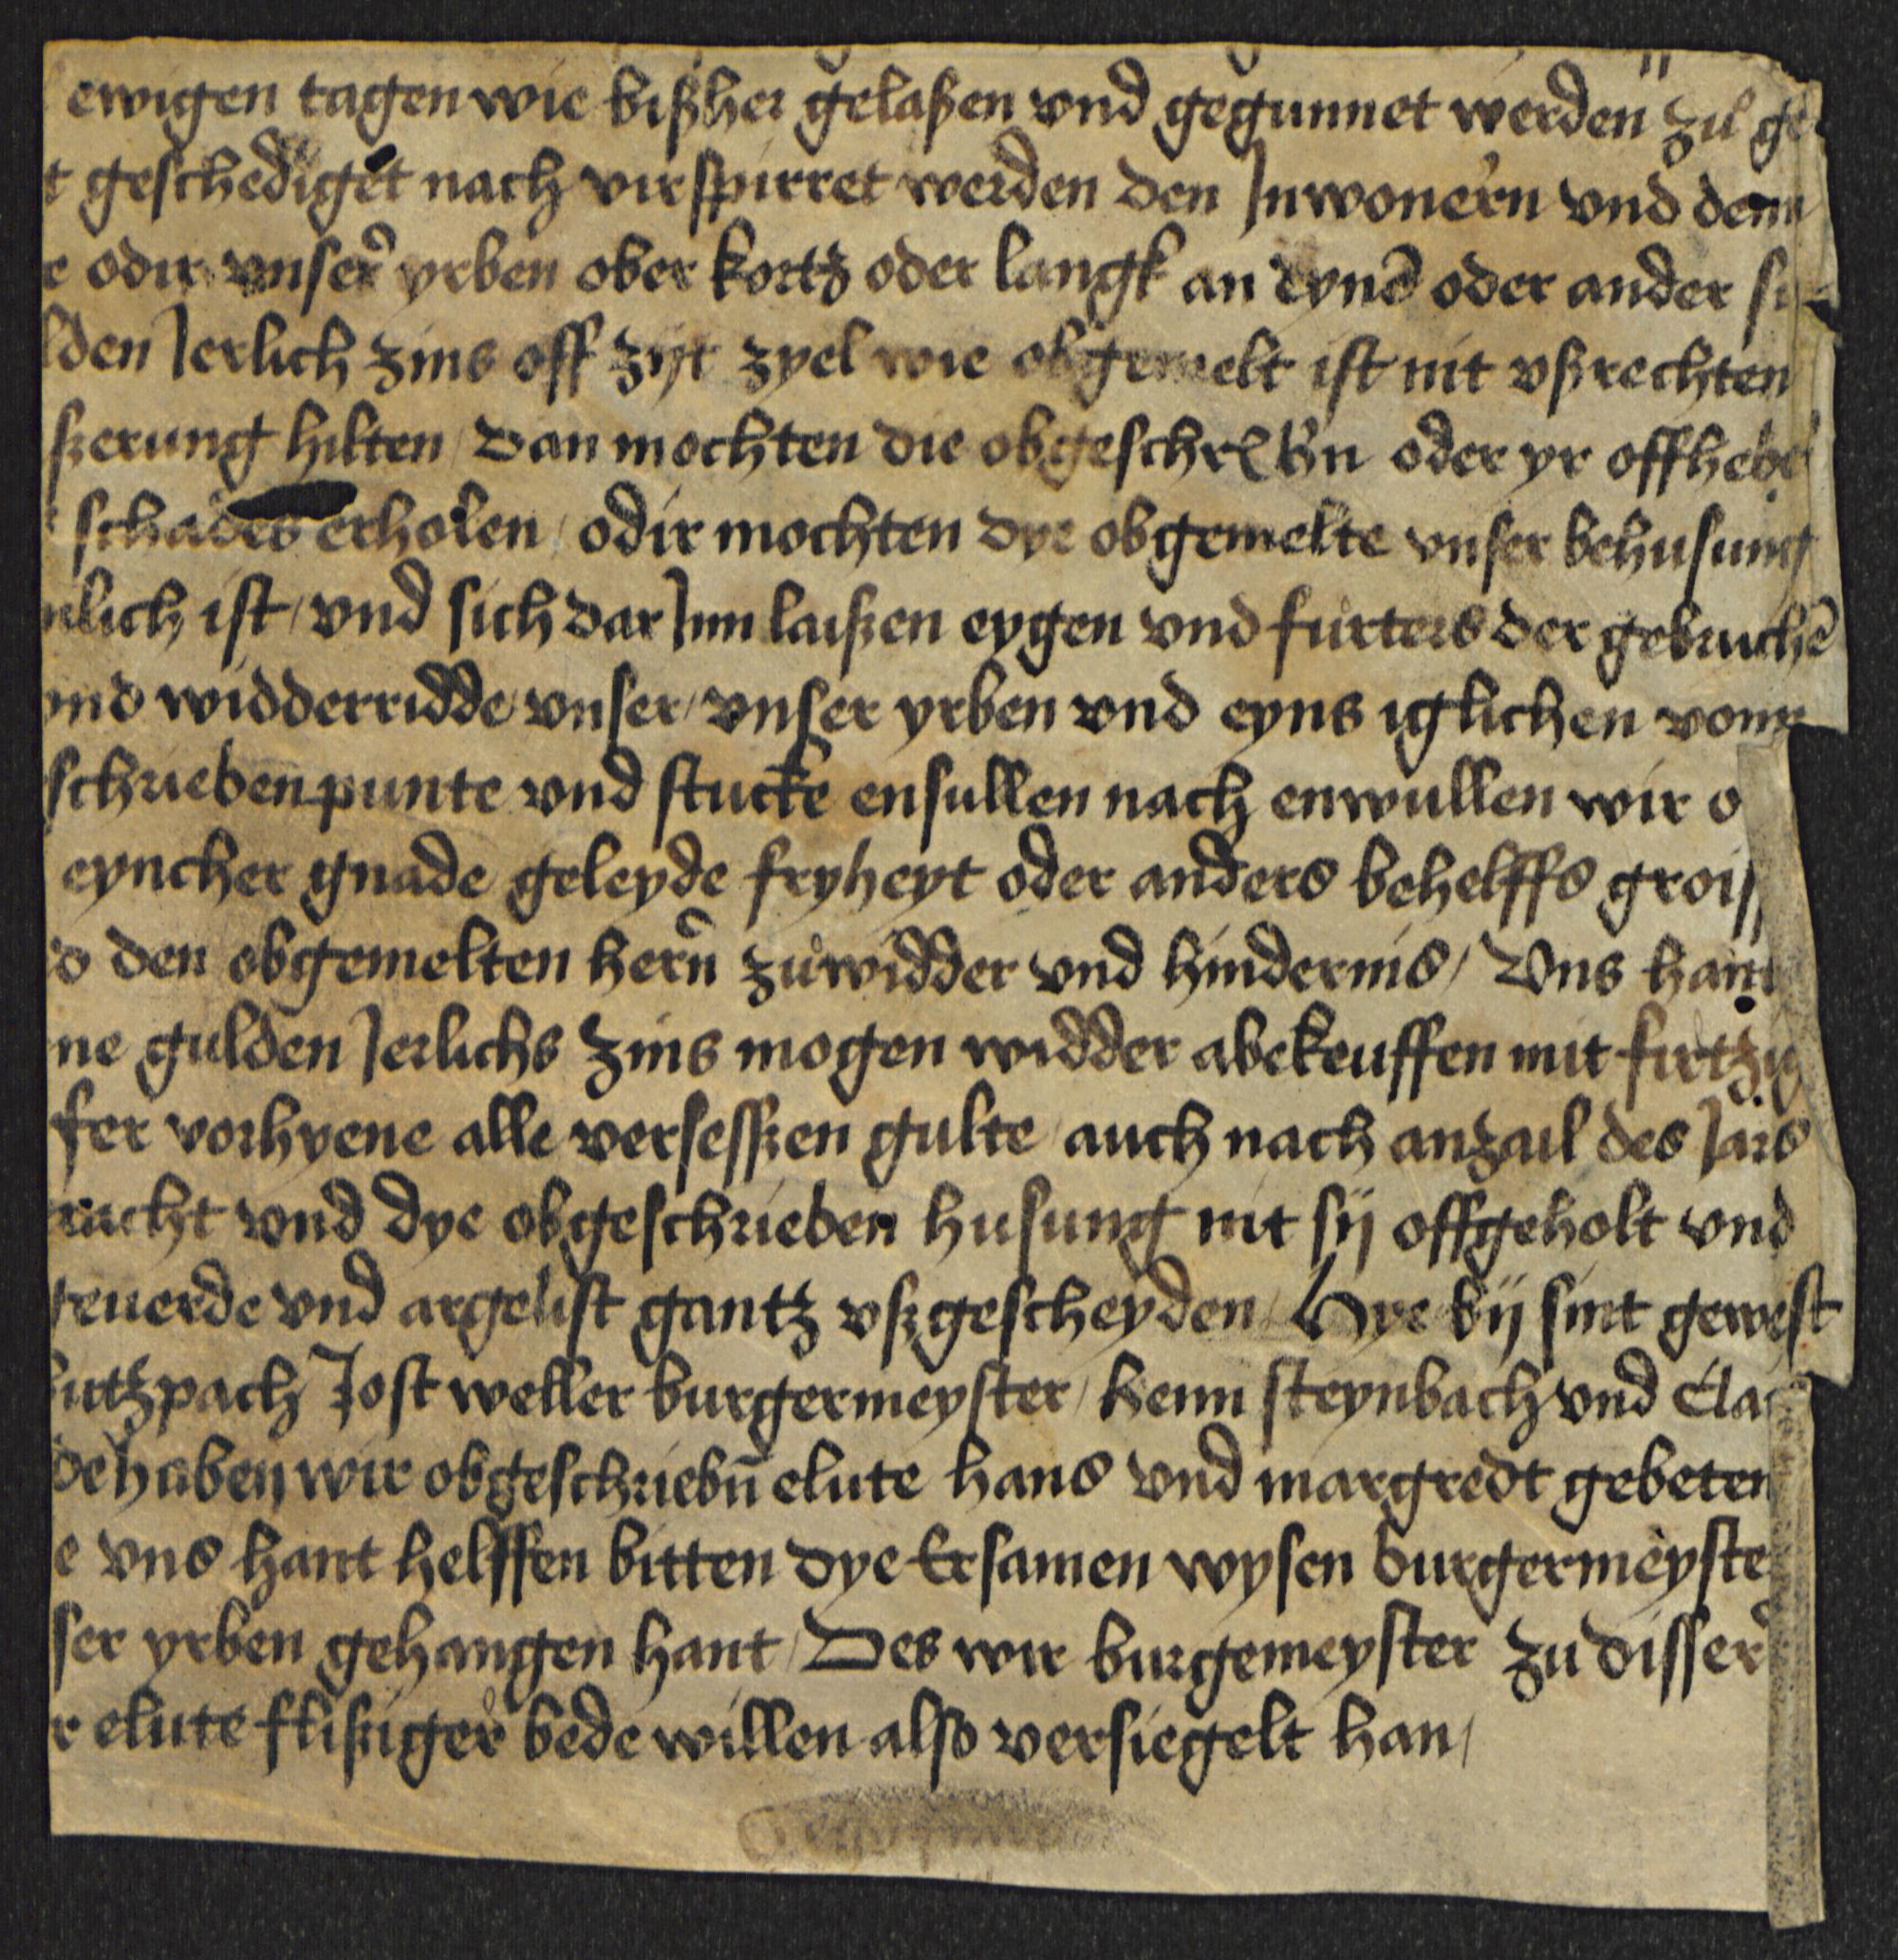 ewigen tagen wie bißher gelaßen vnd gegunnet werden zu ge
t geschediget nach virspirret werden den Inwonern vnd den
e odir vnser yrben ober kortz oder langk an eynē oder ander si
lden Jerlich zins off zijt zyel wie obgemelt ist nit vßrechten
ßerung hilten / dan mochten die obgeschrbn oder yr offhebe
schades erholen / odir mochten dye obgemelte vnser behusung
nlich ist / vnd sich dar Inn laißen eygen vnd furters der gebruchē
vnd widderridde vnser / vnser yrben vnd eyns iglichen vonn
schrieben punte vnd stucke ensullen nach enwullen wir o
eyncher gnade geleyde fryheyt oder anders behelffs grois
o den obgemelten hern zuwidder vnd hindernis / Vns hant
ne gulden Jerlichs zins mogen widder abekeuffen mit firtzig
fer vorhyene alle versesszen gulte auch nach anzail des Jars
racht vnd dye obgeschrieben husung nit sij offgeholt vnd
feuerde vnd argelist gantz vßgescheyden / Hye bij sint gewest
utzpach Jost weller burgermeyster / henn steynbach vnd Cla
de haben wir obgeschriebn̄ elute hans vnd margredt gebeten
e vns hant helffen bitten dye Ersamen wysen burgermeyste
ser yrben gehangen hant / Des wir burgemeyster zu disser
r elute flißiger bede willen also versiegelt han /